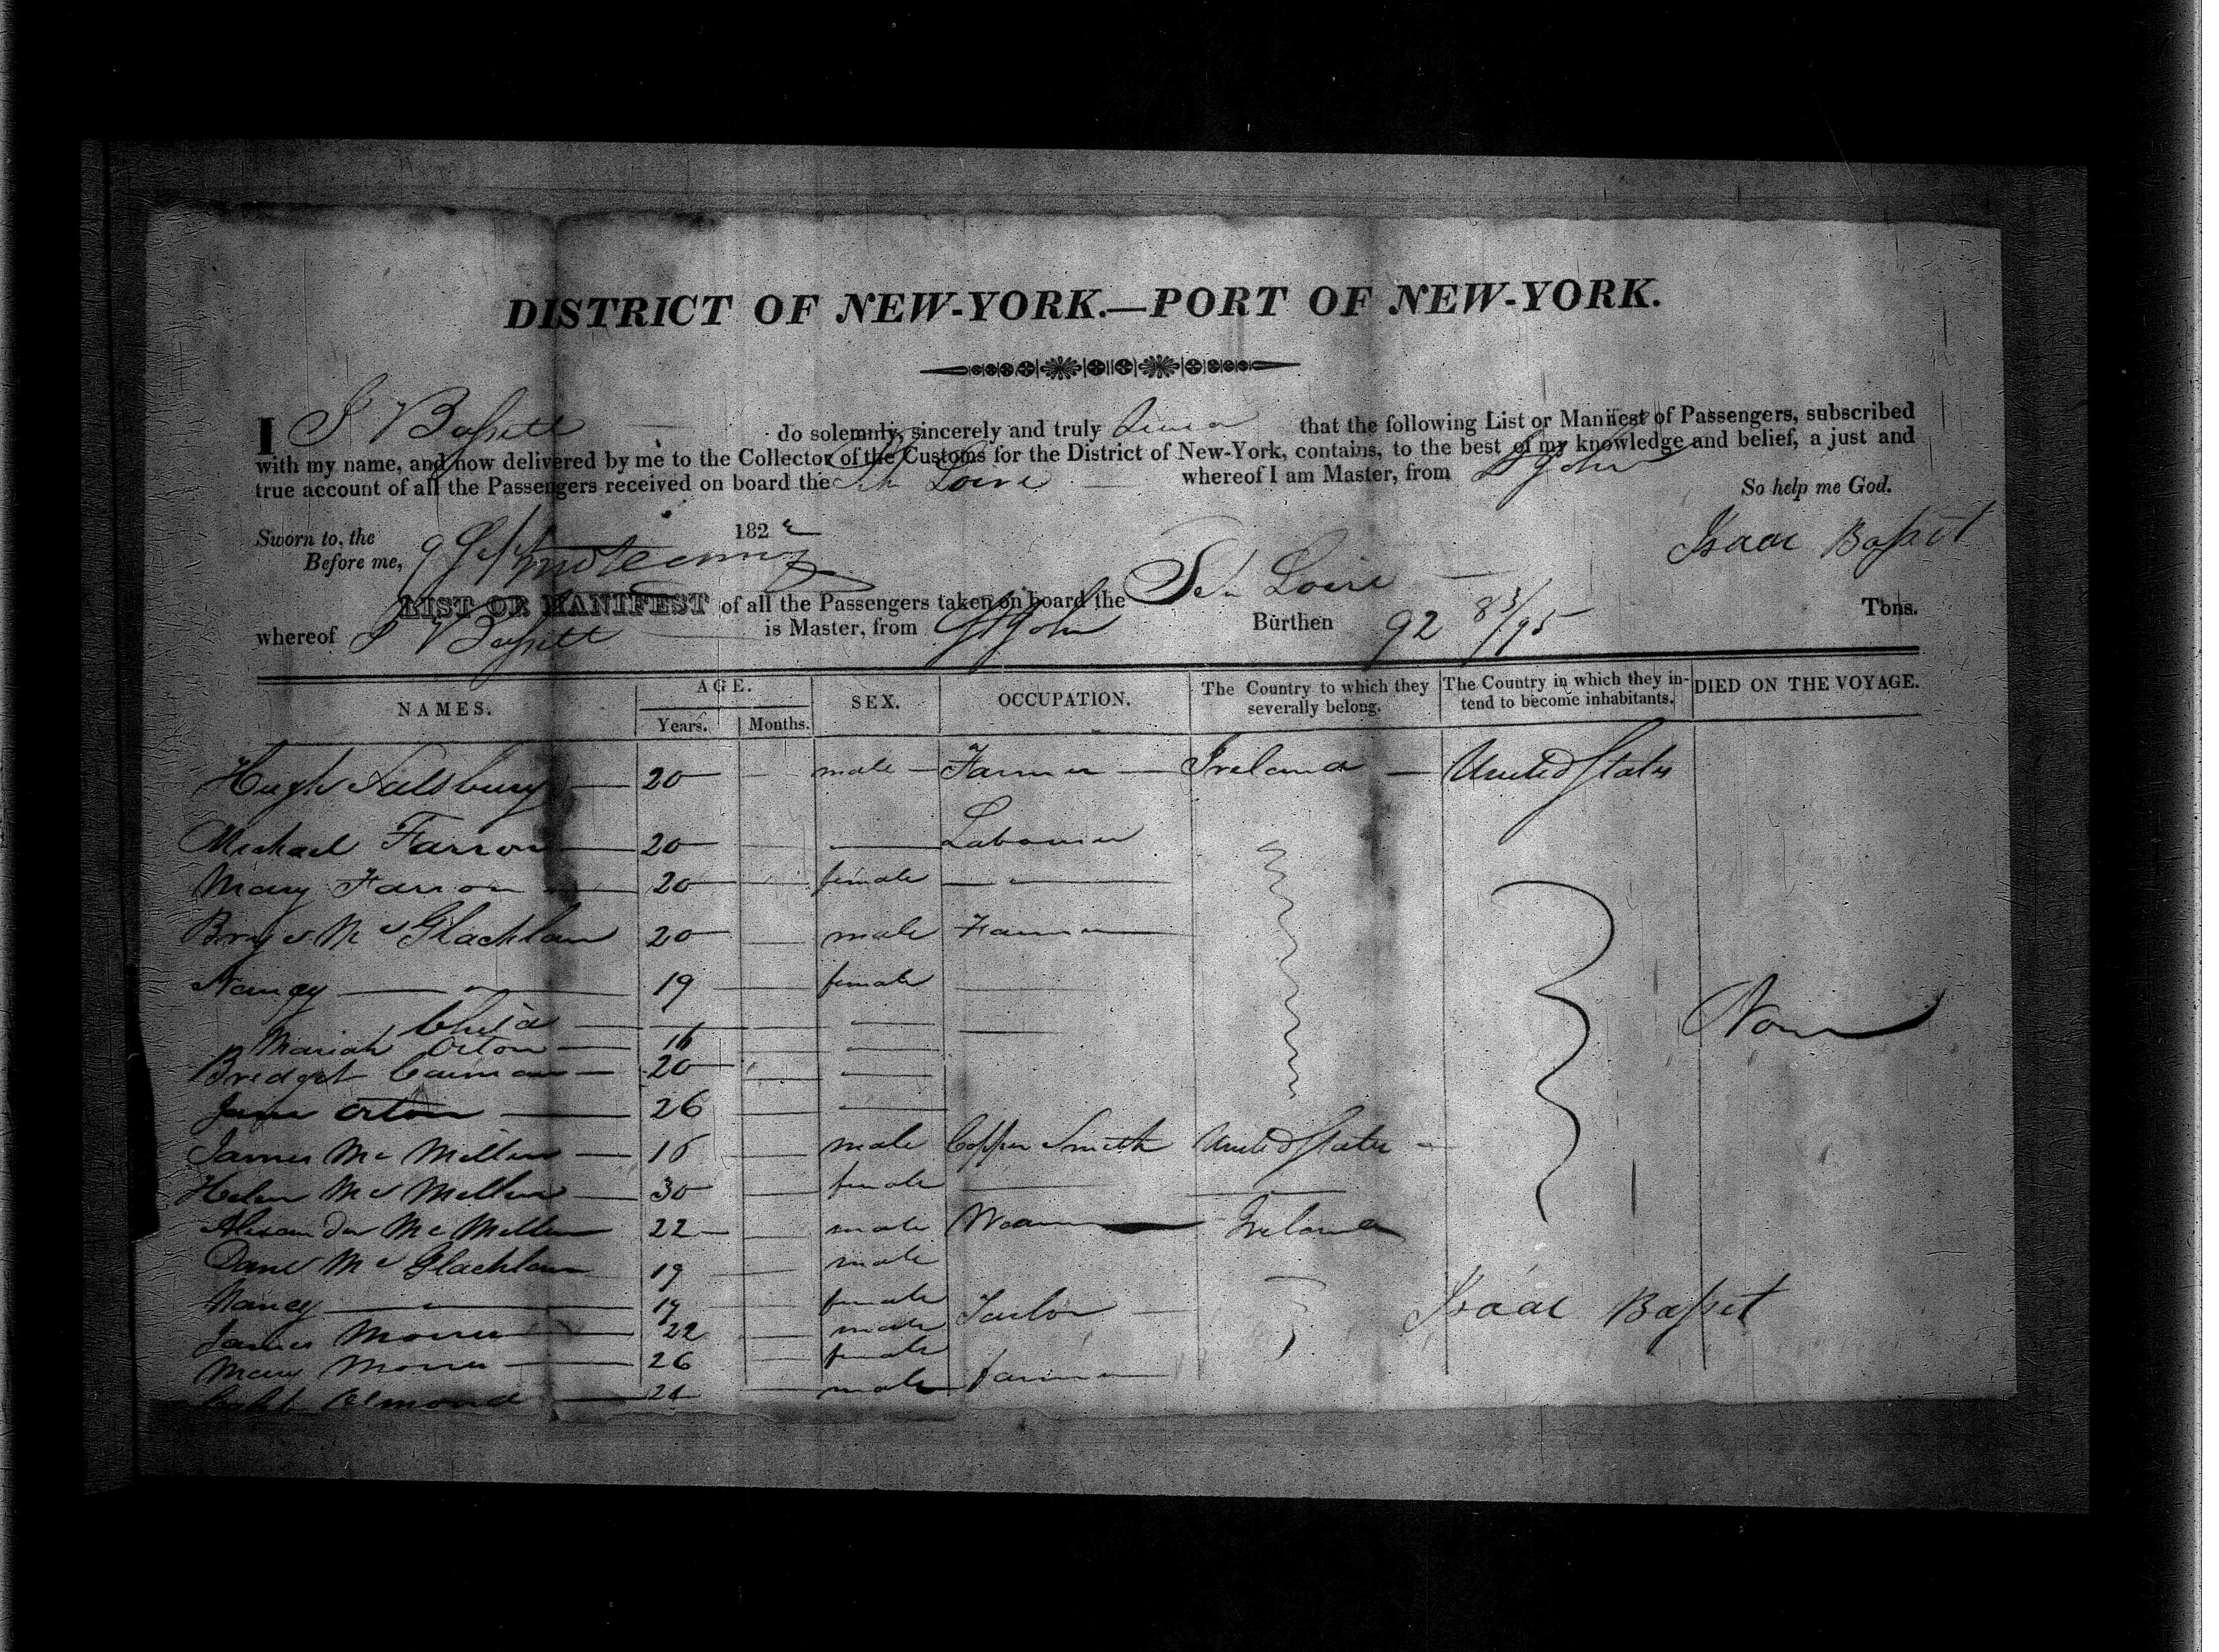 DISTRICT OF NEW-YORK.—PORT OF NEW-YORK.
I I Bassett do solemnly, sincerely and truly swear that the following List or Manifest of Passengers, subscribed
with my name, and now delivered by me to the Collector of the Customs for the District of New-York, contains, to the best of my knowledge and belief, a just and
true account of all the Passengers received on board the Sch Loire whereof I am Master, from St John
So help me God.
Sworn to, the 9 Sept 182
Before me,
Isaac Basset
LIST OR MANIFEST of all the Passengers taken on board the Sch Loire
whereof I Bassett is Master, from St John Burthen 92 83/95 Tons.
NAMES. AGE. SEX. OCCUPATION. The Country to which they severally belong. The Country in which they intend to become inhabitants. DIED ON THE VOYAGE.
Years. Months.
Hugh Salsbury 20 male Farmer Ireland United States
Michael Farron 20 Labourer
Mary Farron 20 female
Mc Glachlan 20 male Farmer
Nancy 19 female
Child
Mariah Orton 16
Bridget 20
Jane Orton 26
None
James Mc Millen 18 male Copper Smith United States
Helen Mc Millen 30 female
Alexander Mc Millen 22 male Weaver Ireland
Mc Glachlan 19 male
Nancy 19 female
James Morris 22 male Tailor
Isaac Basset
Mary Morris 26 female
Almond 21 male Farmer